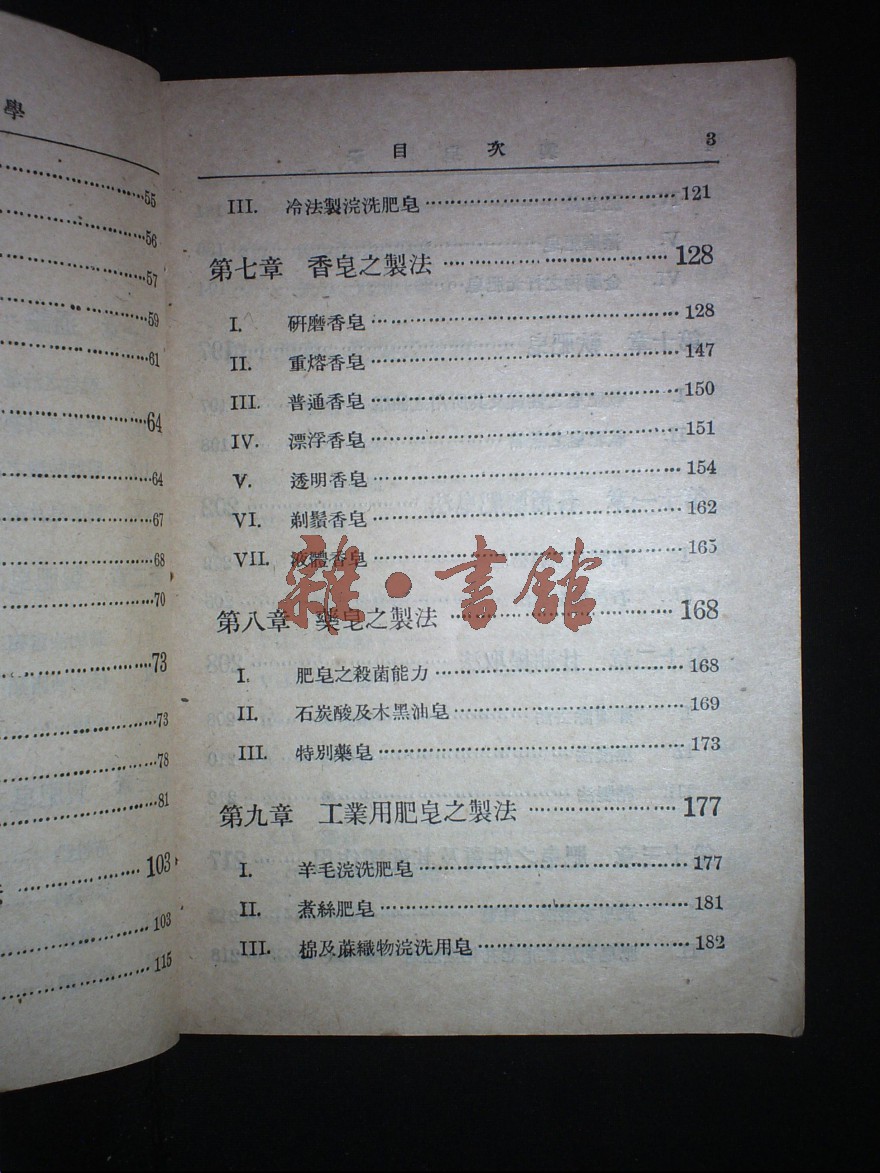 學
55
56
57
59
61
64
64
67
68
70
73
73
78
81
103
103
115
目次 3
III. 冷法製浣洗肥皂 121
第七章 香皂之製法 128
I. 研磨香皂 128
II. 重熔香皂 147
III. 普通香皂 150
IV. 漂浮香皂 151
V. 透明香皂 154
VI. 剃鬚香皂 162
VII. 液體香皂 165
雜·書館
第八章 藥皂之製法 168
I. 肥皂之殺菌能力 168
II. 石炭酸及木黑油皂 169
III. 特別藥皂 173
第九章 工業用肥皂之製法 177
I. 羊毛浣洗肥皂 177
II. 煮絲肥皂 181
III. 棉及蔴織物浣洗用皂 182